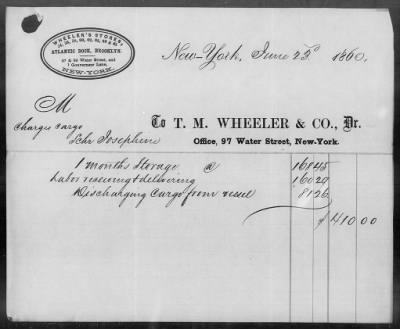 WHEELER'S STORES,
ATLANTIC DOCK, BROOKLYN.
97 & 98 Water Street, and
1 Gouverneur Lane,
NEW-YORK.
New-York, June 23d 1860.
M
Charges Cargo
Schr Josephine
To T. M. WHEELER & CO., Dr.
Office, 97 Water Street, New-York.
1 months Storage @ 168 45
Labor receiving & delivering 160 29
Discharging Cargo from vessel 81 26
$ 410 00